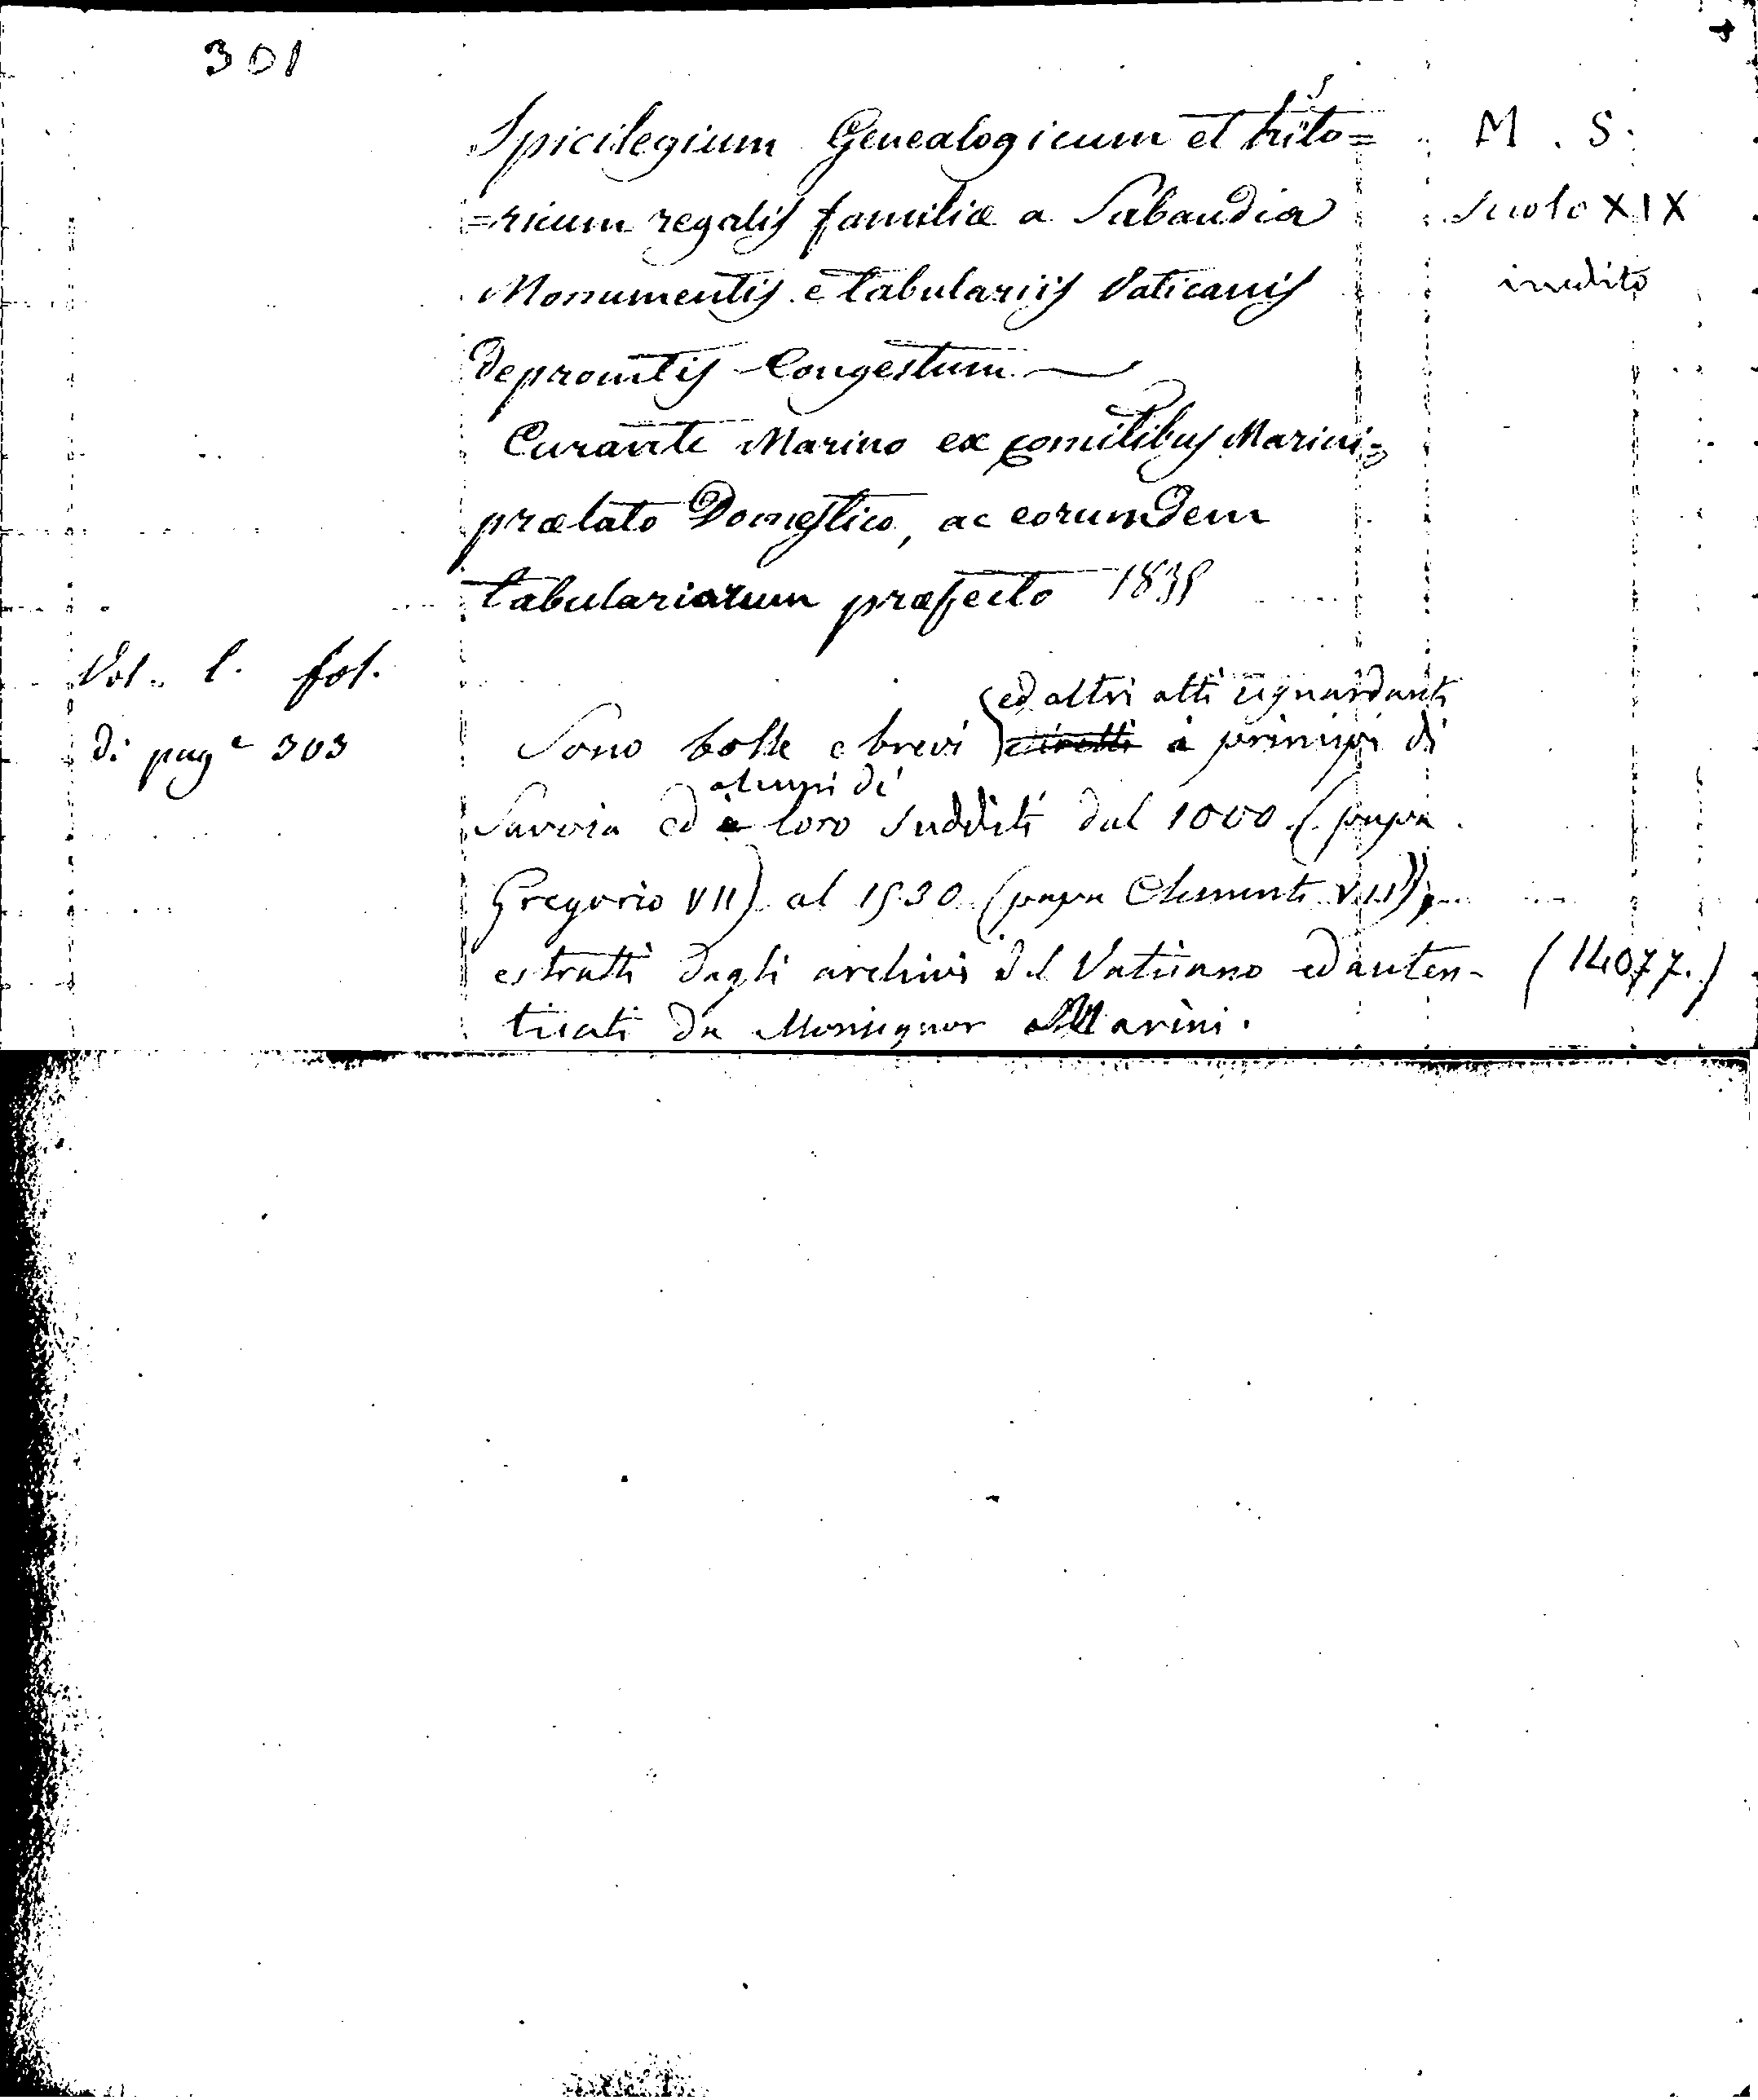 301
Spicilegium Genealogicum et histo=
=ricum regalis familiæ a Sabaudia
Monumentis e tabulariis Vaticanis
depromtis Congestum
Curante Marino ex comitibus Marini
prælato Domestico, ac eorumdem
tabulariorum præfecto 1835
M. S.
Secolo XIX
inedito
Vol. 1. fol.
di pag.e 303
ed altri atti riguardanti
Sono bolle e brevi diretti a principi di
alcuni di
Savoia ed a loro sudditi dal 1000 (papa
Gregorio VII) al 1530 (papa Clemente VII),
estratti dagli archivi del Vaticano ed auten-
ticati da Monsignor Marini.
(14077.)